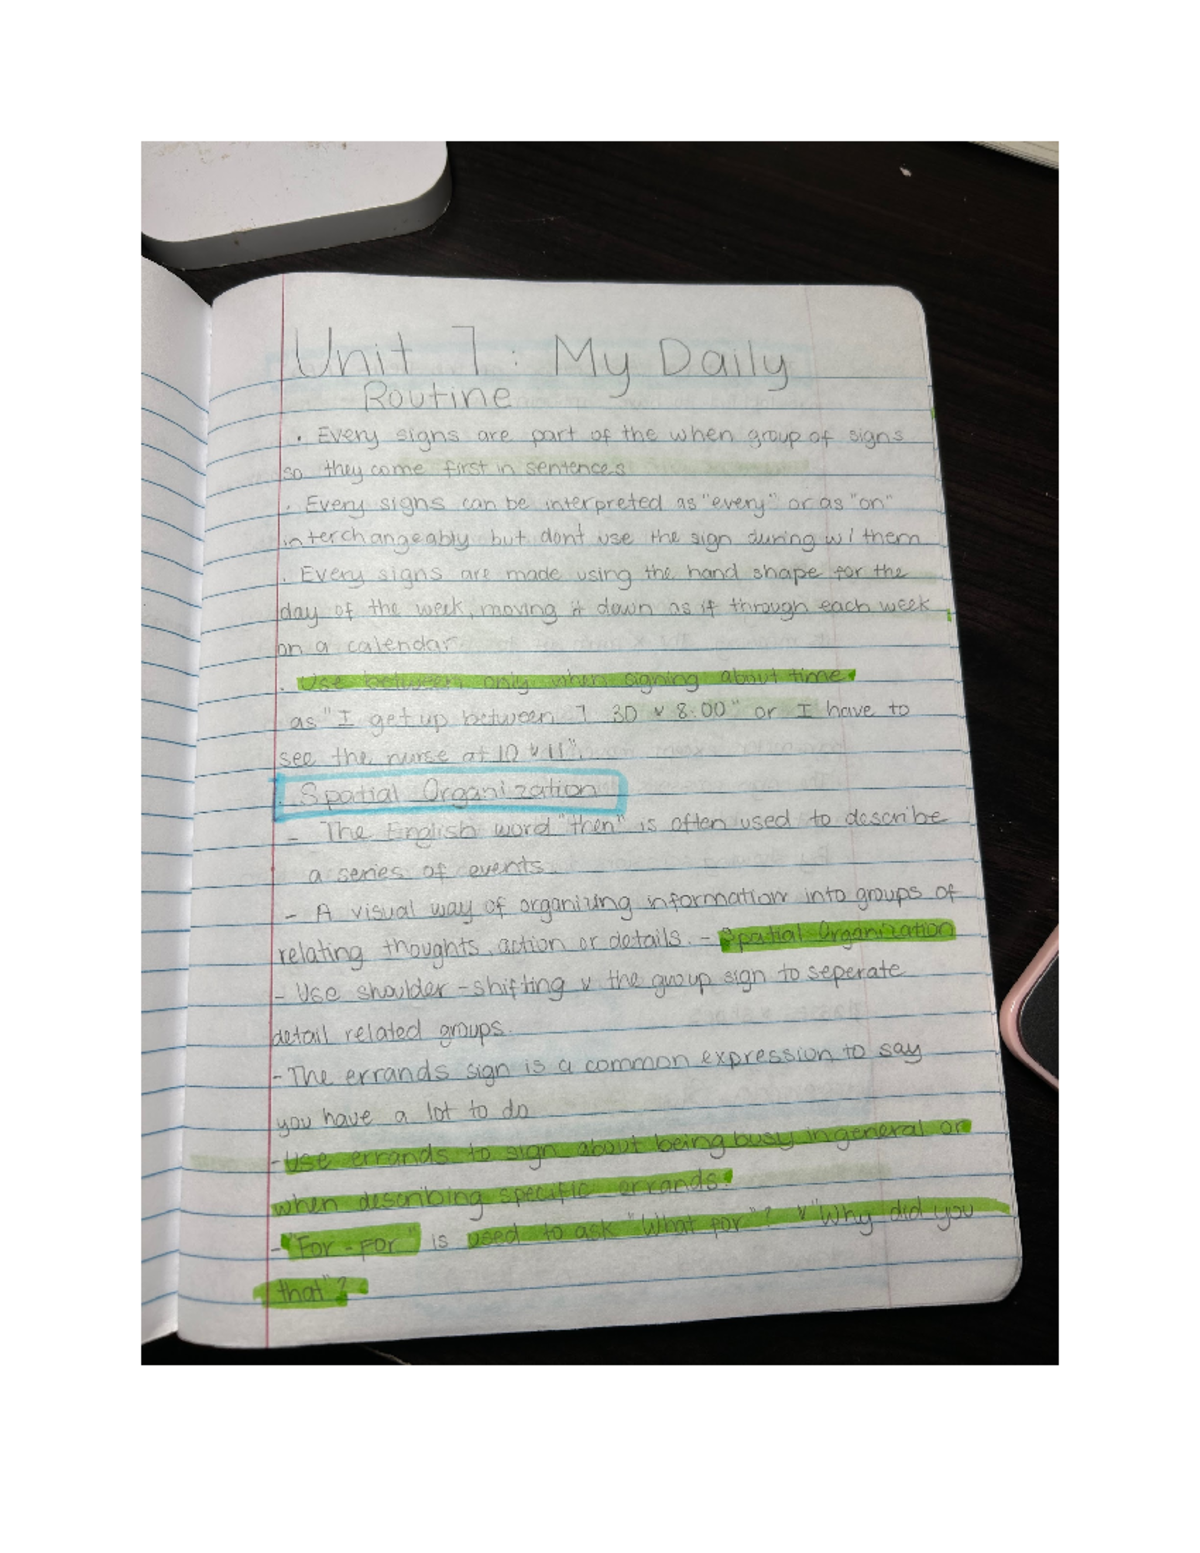 Unit 7: My Daily
Routine
• Every signs are part of the when group of signs
so they come first in sentences
. Every signs can be interpreted as "every" or as "on"
interchangeably but don't use the sign during w/ them
. Every signs are made using the hand shape for the
day of the week, moving it down as if through each week
on a calendar.
. Use between only when signing about time
as "I get up between 7 30 & 8:00" or I have to
see the nurse at 10 & 11".
. Spatial Organization
- The English word "then" is often used to describe
a series of events.
- A visual way of organizing information into groups of
relating thoughts, action or details. - Spatial Organization
- Use shoulder-shifting & the group sign to seperate
detail related groups.
- The errands sign is a common expression to say
you have a lot to do
- Use errands to sign about being busy in general or
when describing specific errands.
- "For-For" is used to ask "What for"? & "Why did you
that"?